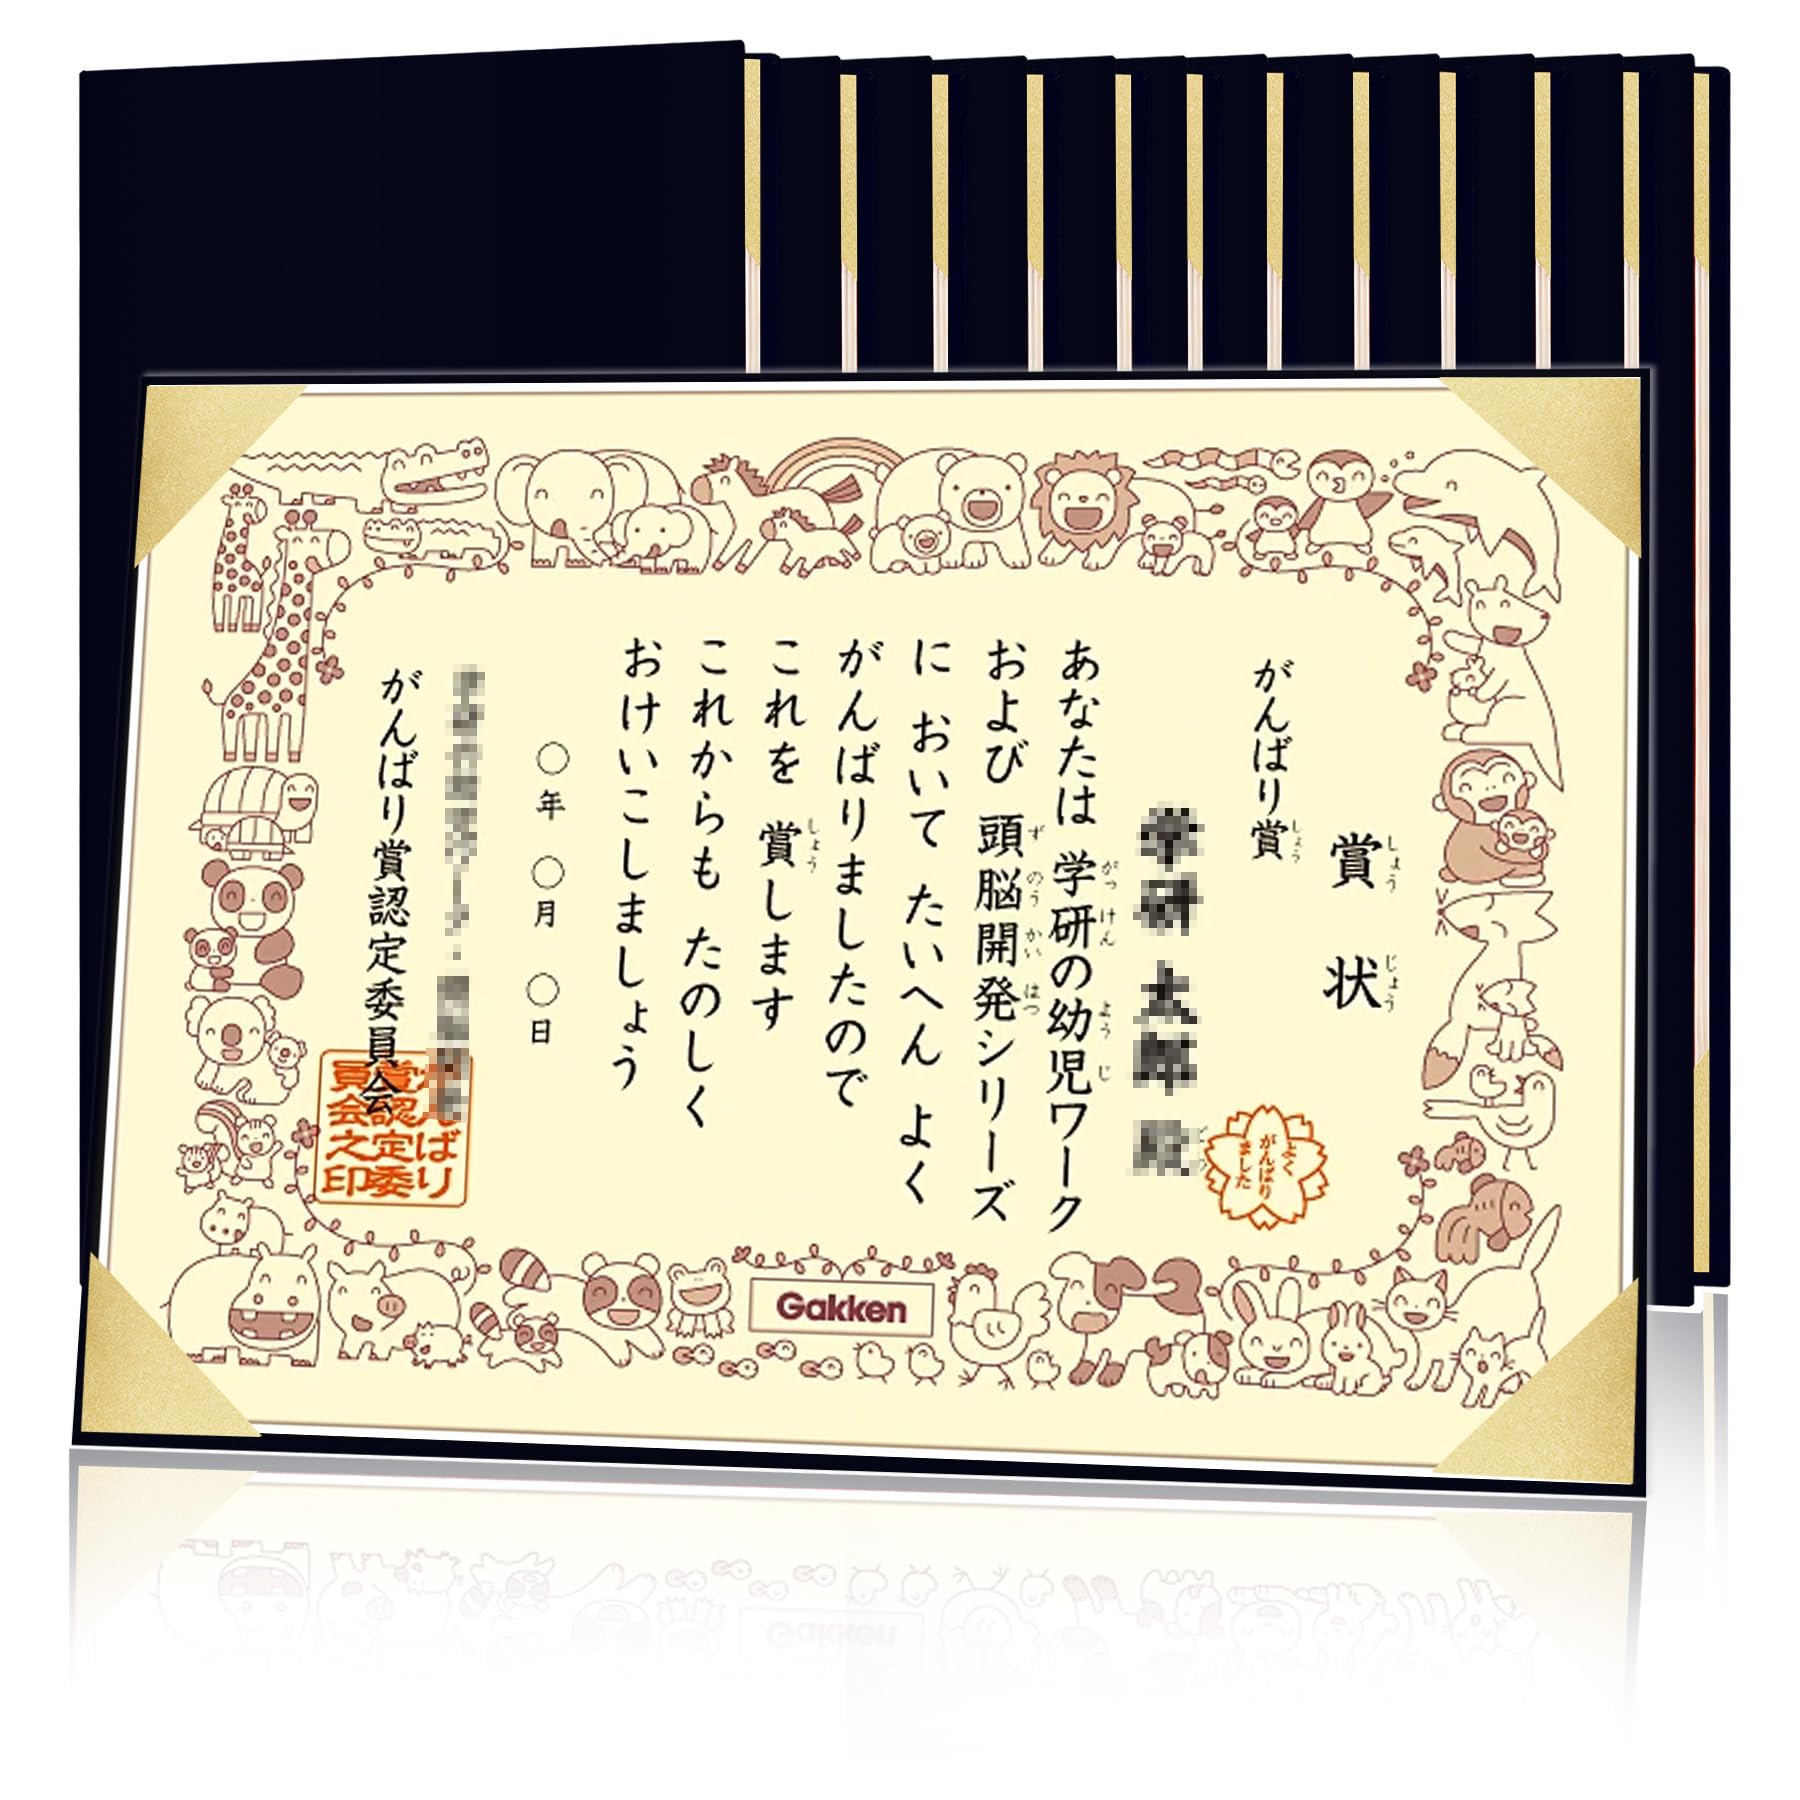 賞状
がんばり賞
学研 太郎 殿
あなたは 学研の幼児ワーク
および 頭脳開発シリーズ
に おいて たいへん よく
がんばりましたので
これを 賞します
これからも たのしく
おけいこしましょう
○年 ○月 ○日
がんばり賞認定委員会
よく
がんばり
ました
がんばり
賞認定委
員会之印
Gakken